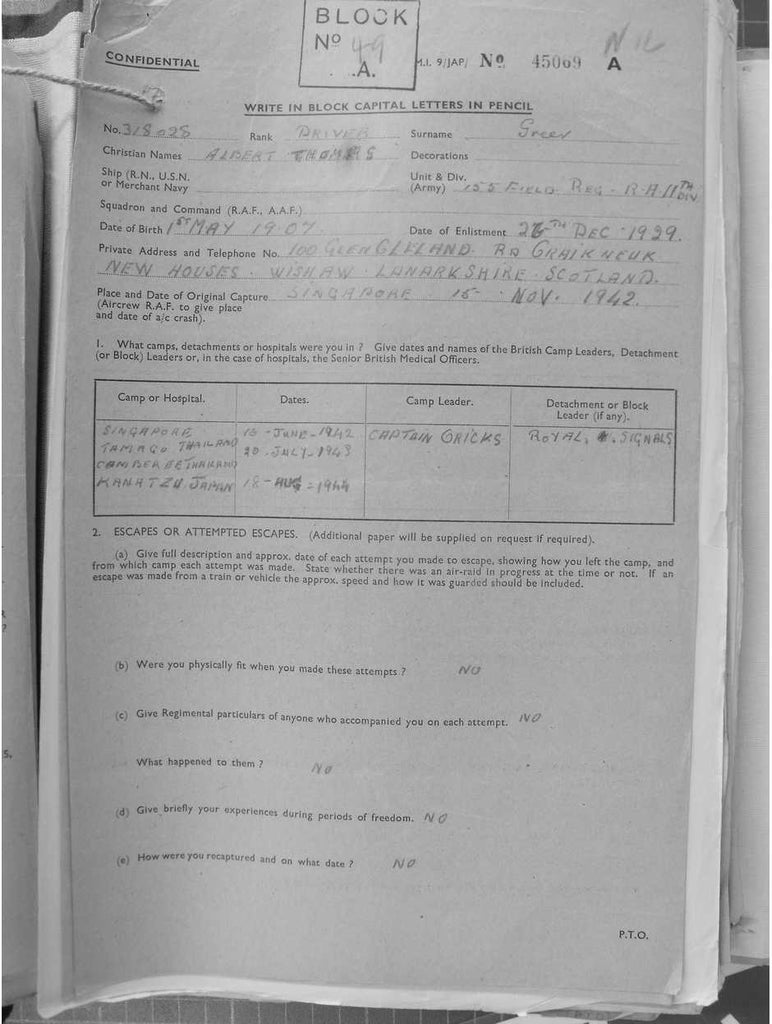 BLOCK
Nº 49
.A.
CONFIDENTIAL
M.I. 9/JAP/ Nº 45069 A
NIL
WRITE IN BLOCK CAPITAL LETTERS IN PENCIL
No. 318028 Rank DRIVER Surname Green
Christian Names ALBERT THOMAS Decorations
Ship (R.N., U.S.N.
or Merchant Navy
Unit & Div.
(Army) 155 FIELD REG - R-A 11TH DIV
Squadron and Command (R.A.F., A.A.F.)
Date of Birth 1ST MAY 1907 Date of Enlistment 26TH DEC 1939.
Private Address and Telephone No. 100 GLENCLELAND RD CRAIKNEUK
NEW HOUSES. WISHAW. LANARKSHIRE. SCOTLAND.
Place and Date of Original Capture SINGAPORE. 15- NOV. 1942.
(Aircrew R.A.F. to give place
and date of a/c crash).
1. What camps, detachments or hospitals were you in ? Give dates and names of the British Camp Leaders, Detachment
(or Block) Leaders or, in the case of hospitals, the Senior British Medical Officers.
Camp or Hospital. Dates. Camp Leader. Detachment or Block
Leader (if any).
SINGAPORE 16-JUNE-1942 CAPTAIN GRICKS ROYAL, SIGNALS
TAMAGO THAILAND 20-JULY-1943
THAILAND
KANATZU JAPAN 18-AUG-1944
2. ESCAPES OR ATTEMPTED ESCAPES. (Additional paper will be supplied on request if required).
(a) Give full description and approx. date of each attempt you made to escape, showing how you left the camp, and
from which camp each attempt was made. State whether there was an air-raid in progress at the time or not. If an
escape was made from a train or vehicle the approx. speed and how it was guarded should be included.
(b) Were you physically fit when you made these attempts ? NO
(c) Give Regimental particulars of anyone who accompanied you on each attempt. NO
What happened to them ? NO
(d) Give briefly your experiences during periods of freedom. NO
(e) How were you recaptured and on what date ? NO
P.T.O.